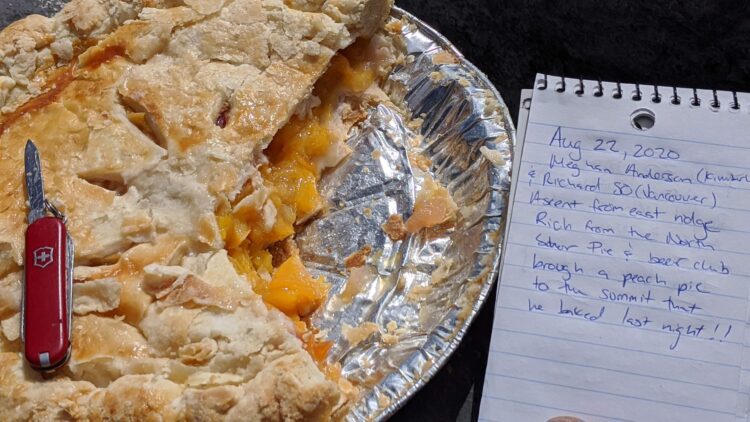 Aug 22, 2020
Meghan Anderson (Kimberl
& Richard SO (Vancouver)
Ascent from east ridge
Rich from the North
Shore Pie & beer club
brough a peach pie
to the summit that
he baked last night!!